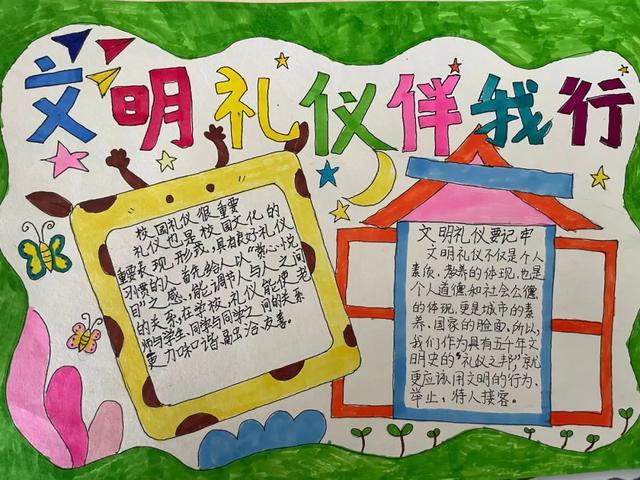 文明礼仪伴我行
校园礼仪很重要
礼仪也是校园文化的
重要表现形式,具有良好礼仪
习惯的人,首先给人以“赏心悦
目”之感,能调节人与人之间
的关系,在学校,礼仪能使老
师与学生同学与同学之间的关系
更力味口谐融洽友善。
文明礼仪要记牢
文明礼仪不仅是个人
素质、教养的体现,也是
个人道德和社会公德
的体现,更是城市的素
养、国家的脸面,所以,
我们作为具有五千年文
明史的“礼仪之邦”,就
更应该用文明的行为、
举止,待人接客。